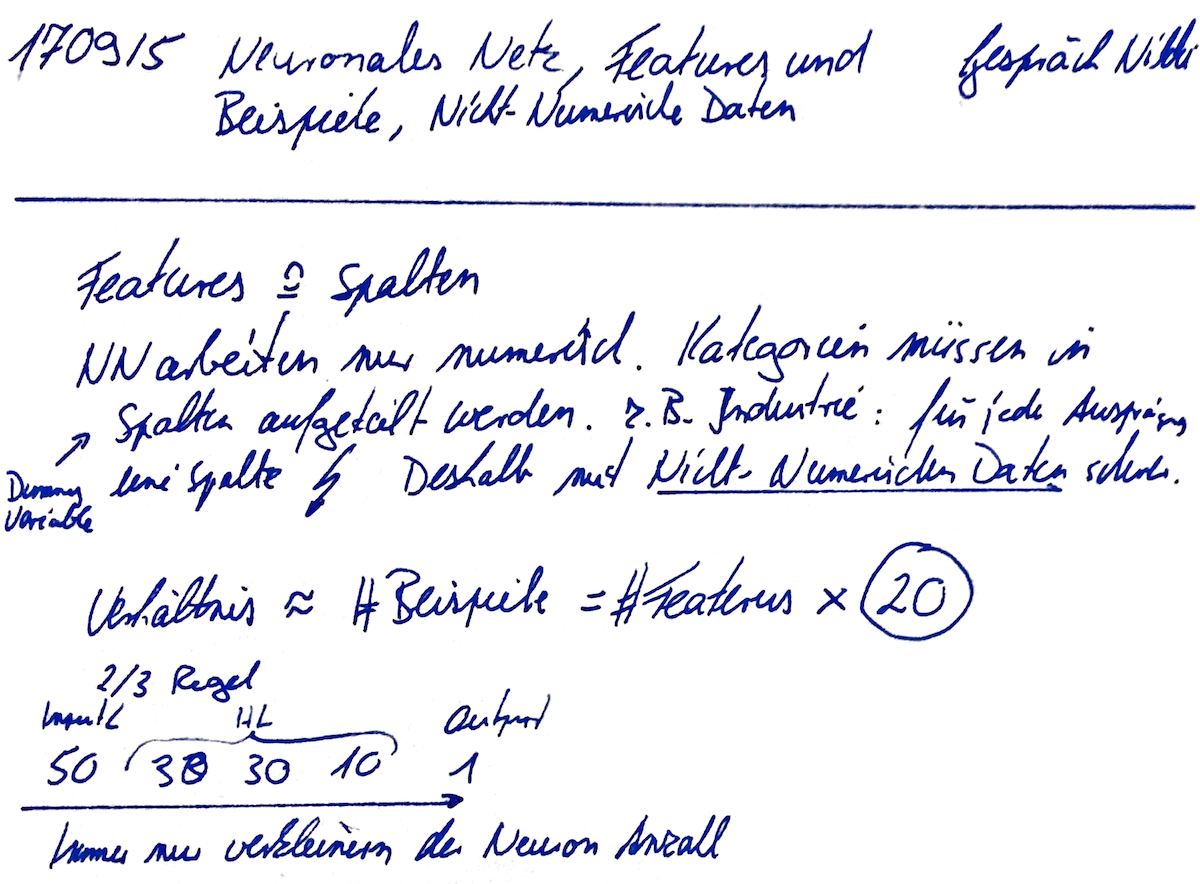 170915 Neuronales Netz, Features und Gespräch Nikki
Beispiele, Nicht-Numerische Daten
Features ≙ Spalten
NN arbeiten nur numerisch. Kategorien müssen in
Spalten aufgeteilt werden. z.B. Industrie: für jede Ausprägung
eine Spalte ↯ Deshalb mit Nicht-Numerischen Daten schwer.
↗
Dummy
Variable
Verhältnis ≈ #Beispiele = #Features × 20
2/3 Regel
Input HL Output
50 30 30 10 1
Immer nur verkleinern der Neuron Anzahl